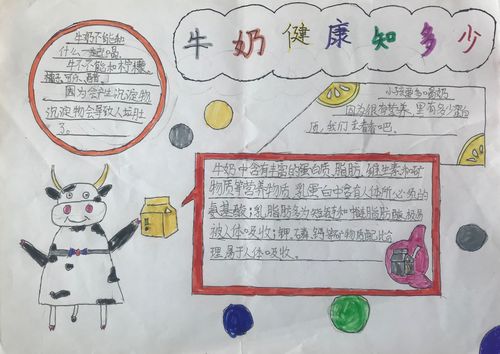 牛奶健康知多少
牛奶不能和
什么一起喝
牛不不能和柠檬、
因为会产生沉淀物
沉淀物会导致人拉肚
了。
小孩要多喝奶
因为很有营养,里有多少蛋白
质,我们去看看吧。
牛奶中含有丰富的蛋白质、脂肪、维生素和矿
物质等营养物质,乳蛋白中含有人体所必须的
氨基酸;乳脂肪多为短链和中链脂肪酸,极易
被人体吸收;钾、磷、钙等矿物质配比合
理,易于人体吸收。